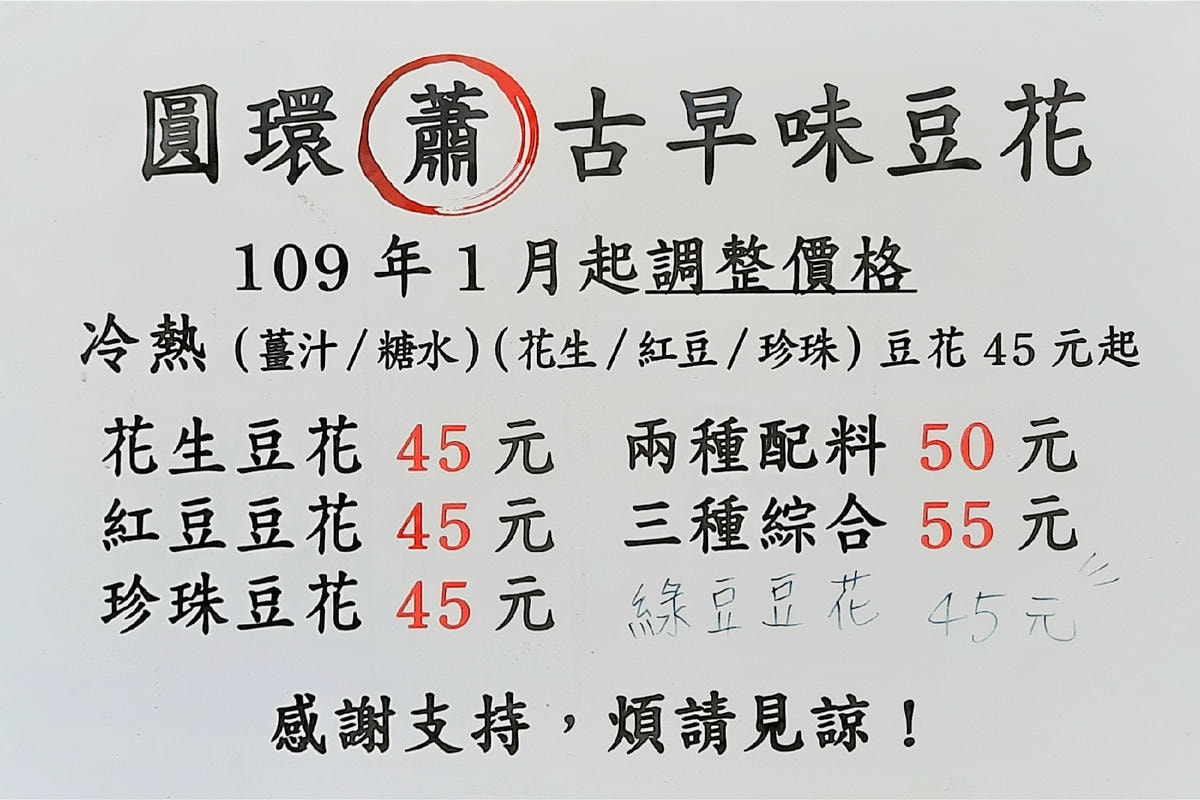 圓環 蕭 古早味豆花
109 年 1 月起調整價格
冷熱 (薑汁/糖水)(花生/紅豆/珍珠) 豆花 45 元起
花生豆花 45 元 兩種配料 50 元
紅豆豆花 45 元 三種綜合 55 元
珍珠豆花 45 元 綠豆豆花 45元
感謝支持，煩請見諒！